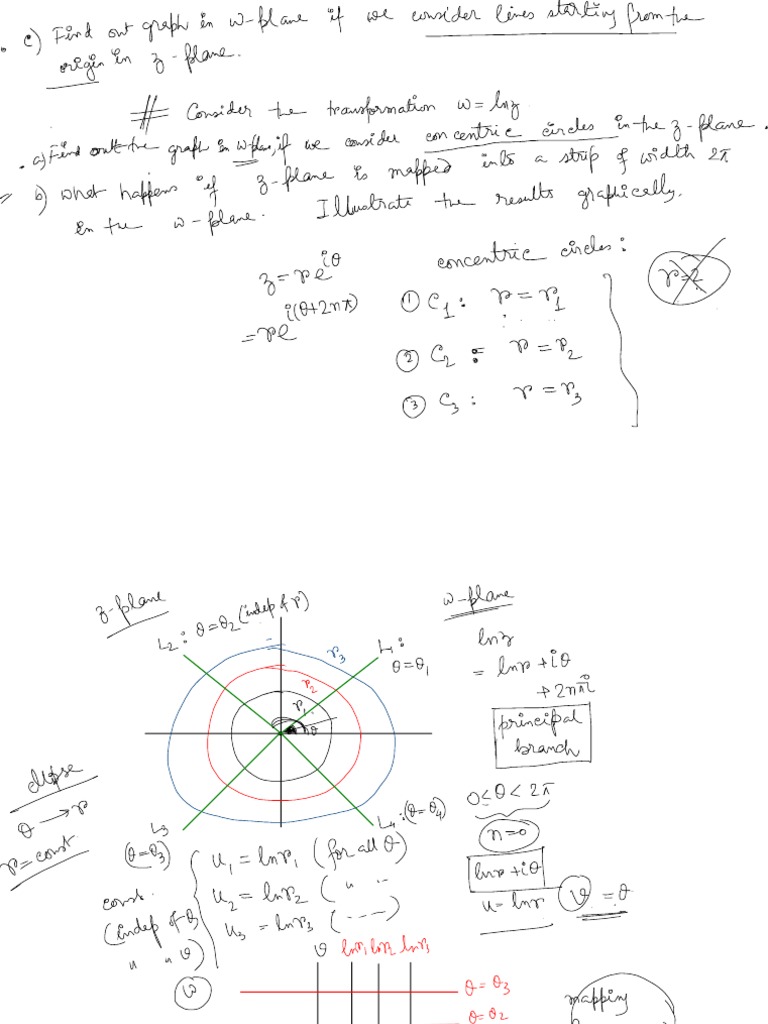 c) Find out graph in w-plane if we consider lines starting from the
origin in z-plane.
# Consider the transformation w = lnz
a) Find out the graph in w-plane, if we consider concentric circles in the z-plane.
b) What happens if z-plane is mapped into a strip of width 2π
in the w-plane. Illustrate the results graphically.
z = re^{iθ}
= re^{i(θ+2nπ)}
concentric circles:
① C₁ : r = r₁
② C₂ : r = r₂
③ C₃ : r = r₃
r=2
z-plane
L₂ : θ = θ₂ (indep of r)
L₁ :
θ = θ₁
r₃
r₂
r₁
θ
L₃
(θ = θ₃)
L₄ : (θ = θ₄)
ellipse
θ → r
r = const
w-plane
lnz
= lnr + iθ
+ 2nπi
principal
branch
0 ≤ θ < 2π
n = 0
lnr + iθ
u = lnr v = θ
u₁ = lnr₁ (for all θ)
u₂ = lnr₂ ( " " )
u₃ = lnr₃ ( ---- )
const.
(indep of θ)
" " v)
w
v lnr₁ lnr₂ lnr₃
θ = θ₃
θ = θ₂
mapping